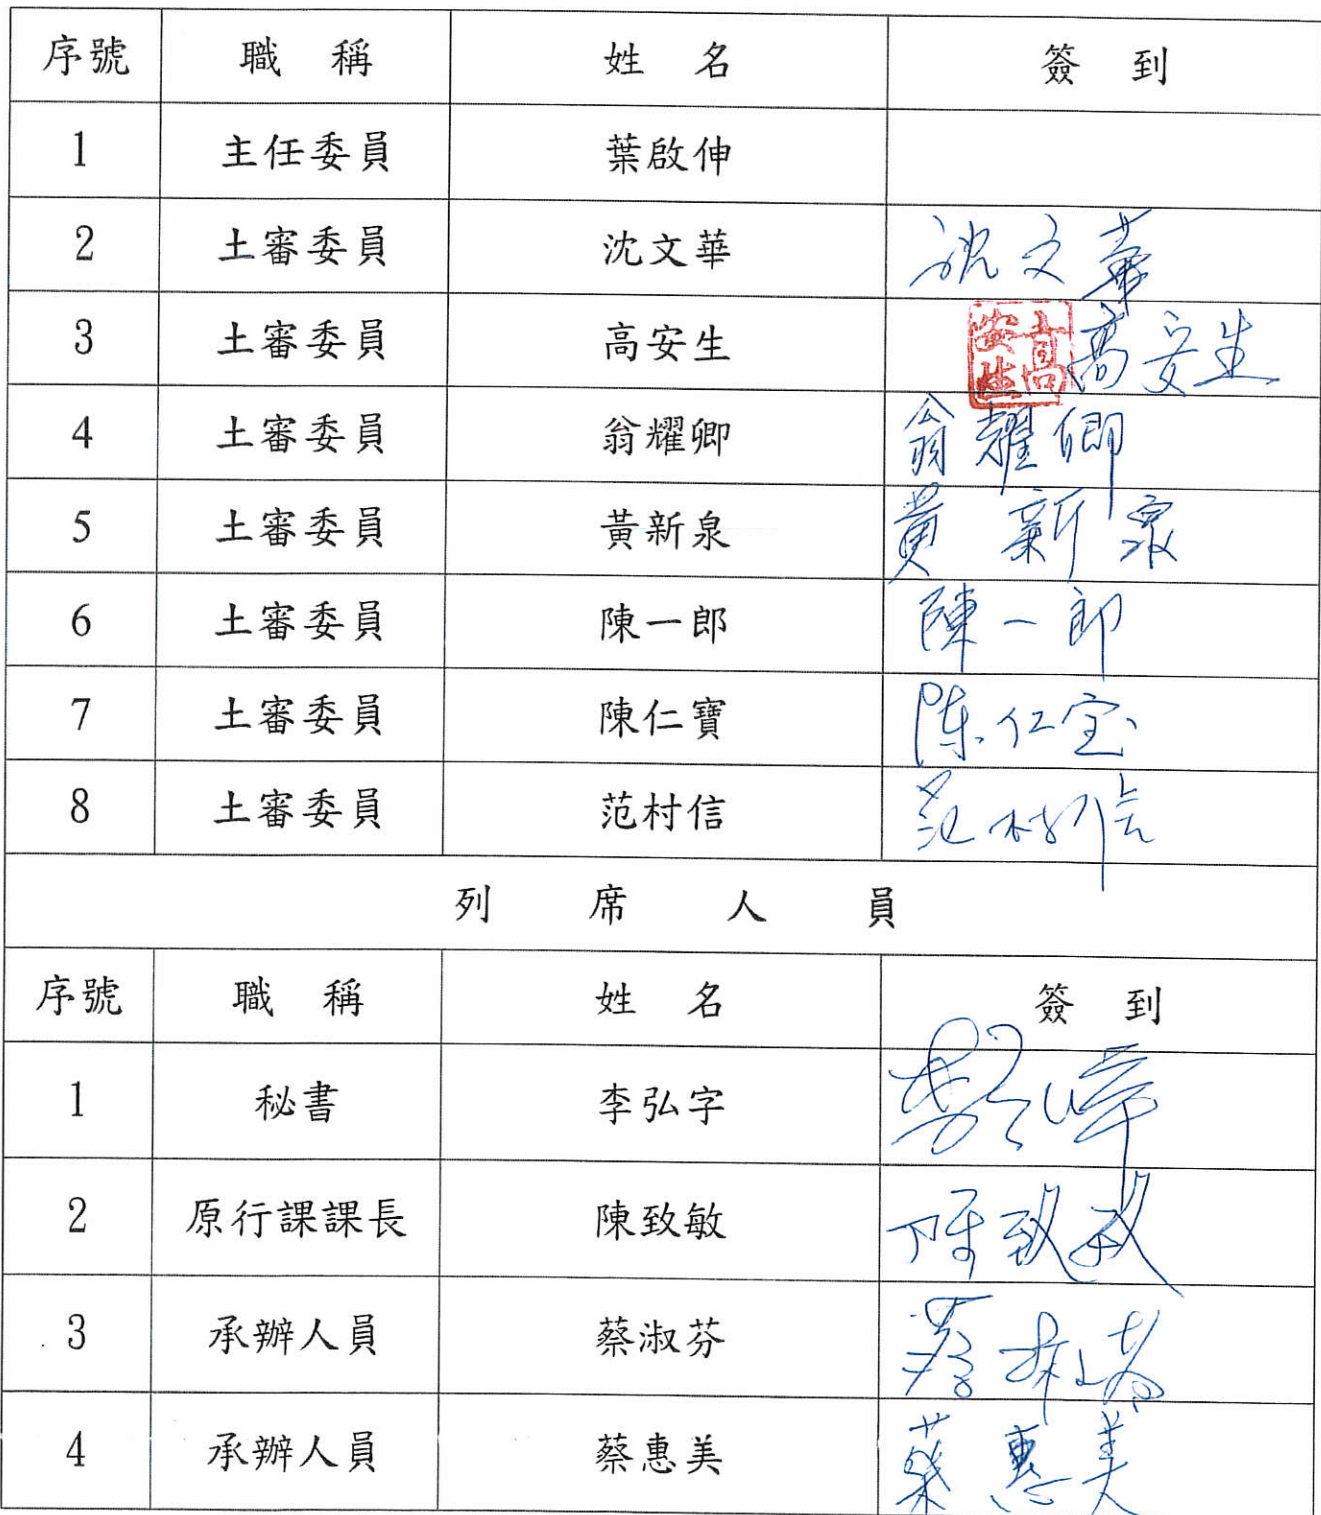 序號 職稱 姓名 簽到
1 主任委員 葉啟伸
2 土審委員 沈文華 沈文華
3 土審委員 高安生 高安生 高安生
4 土審委員 翁耀卿 翁耀卿
5 土審委員 黃新泉 黃新泉
6 土審委員 陳一郎 陳一郎
7 土審委員 陳仁寶 陈仁宝
8 土審委員 范村信 范村信
列席人員
序號 職稱 姓名 簽到
1 秘書 李弘字
2 原行課課長 陳致敏 陳致敏
3 承辦人員 蔡淑芬 蔡淑芬
4 承辦人員 蔡惠美 蔡惠美